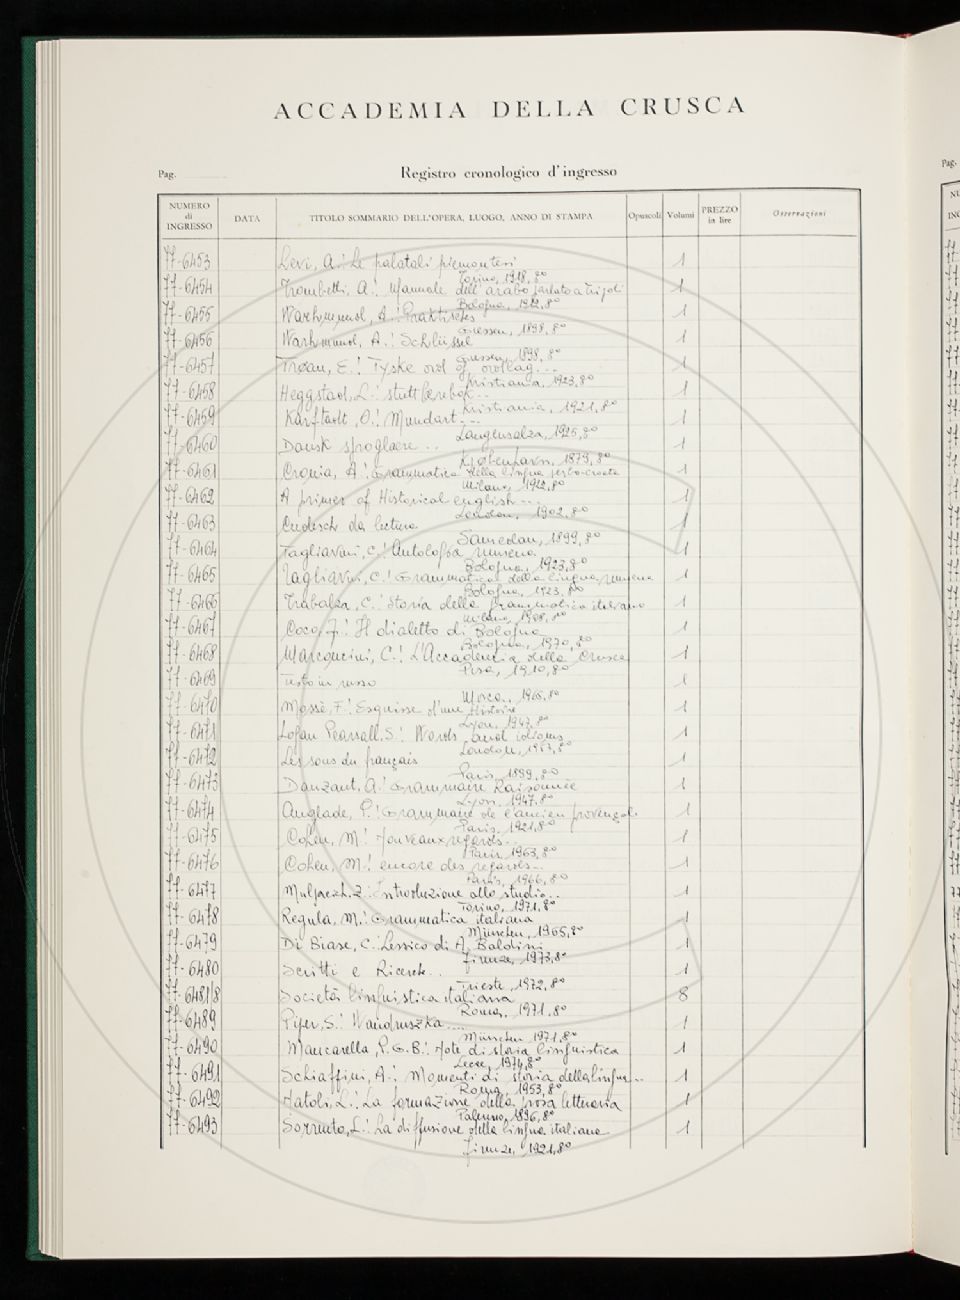 ACCADEMIA DELLA CRUSCA
Pag.
Registro cronologico d'ingresso
NUMERO di INGRESSO DATA TITOLO SOMMARIO DELL'OPERA, LUOGO, ANNO DI STAMPA Opuscoli Volumi PREZZO in lire Osservazioni
77-6453 Levi, A.: Le palatali piemontesi 1
Torino, 1918, 8º
77-6454 Trombetti, A.: Manuale dell'arabo parlato a Tripoli 1
Bologna, 1912, 8º
77-6455 Warhmund, A.: Praktisches 1
Giessen, 1898, 8º
77-6456 Warhmund, A.: Schlüssel 1
Giessen, 1898, 8º
77-6457 Troau, E.: Tyske ord og ordlag... 1
Kristiania, 1923, 8º
77-6458 Heggstad, L.: stutt lærebok... 1
Kristiania, 1921, 8º
77-6459 Karstädt, O.: Mundart... 1
Langensalza, 1925, 8º
77-6460 Dansk sproglære... 1
Kjøbenhavn, 1879, 8º
77-6461 Cronia, A.: Grammatica della lingua serbo-croata 1
Milano, 1922, 8º
77-6462 A primer of Historical english... 1
London, 1902, 8º
77-6463 Cudesch da lectura 1
Samedan, 1899, 8º
77-6464 Tagliavini, C.: Antologia rumena 1
Bologna, 1923, 8º
77-6465 Tagliavini, C.: Grammatica della lingua rumena 1
Bologna, 1923, 8º
77-6466 Trabalza, C.: Storia della grammatica italiana 1
Milano, 1908, 8º
77-6467 Coco, F.: Il dialetto di Bologna 1
Bologna, 1970, 8º
77-6468 Marconcini, C.: L'Accademia della Crusca 1
Pisa, 1910, 8º
77-6469 Testo in russo 1
Mosca, 1965, 8º
77-6470 Mossé, F.: Esquisse d'une Histoire 1
Lyon, 1947, 8º
77-6471 Logan Pearsall, S.: Words and idioms 1
London, 1953, 8º
77-6472 Les sons du français 1
Paris, 1899, 8º
77-6473 Dauzat, A.: Grammaire Raisonnée 1
Lyon, 1947, 8º
77-6474 Anglade, P.: Grammaire de l'ancien provençal 1
Paris, 1921, 8º
77-6475 Cohen, M.: Nouveaux regards... 1
Paris, 1963, 8º
77-6476 Cohen, M.: encore des regards... 1
Paris, 1966, 8º
77-6477 Muljacich, Z.: Introduzione allo studio... 1
Torino, 1971, 8º
77-6478 Regula, M.: Grammatica italiana 1
München, 1965, 8º
77-6479 Di Biase, C.: Lessico di A. Baldini 1
Firenze, 1973, 8º
77-6480 Scritti e Ricerche.. 1
Trieste, 1972, 8º
77-6481/8 Società linguistica italiana 8
Roma, 1971, 8º
77-6489 Piper, S.: Wandruszka.... 1
München 1971, 8º
77-6490 Mancarella, P.G.B.: Note di storia linguistica 1
Lecce, 1974, 8º
77-6491 Schiaffini, A.: Momenti di storia della lingua... 1
Roma, 1953, 8º
77-6492 Natoli, L.: La formazione della prosa letteraria 1
Palermo, 1896, 8º
77-6493 Sorrento, L.: La diffusione della lingua italiana 1
Firenze, 1921, 8º